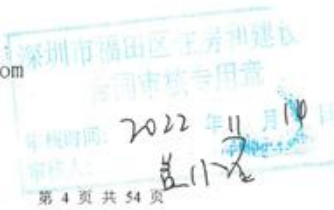 om
深圳市福田区工务和建设
合同审核专用章
审核时间: 2022 年 11 月 10 日
审核人:
第 4 页 共 54 页